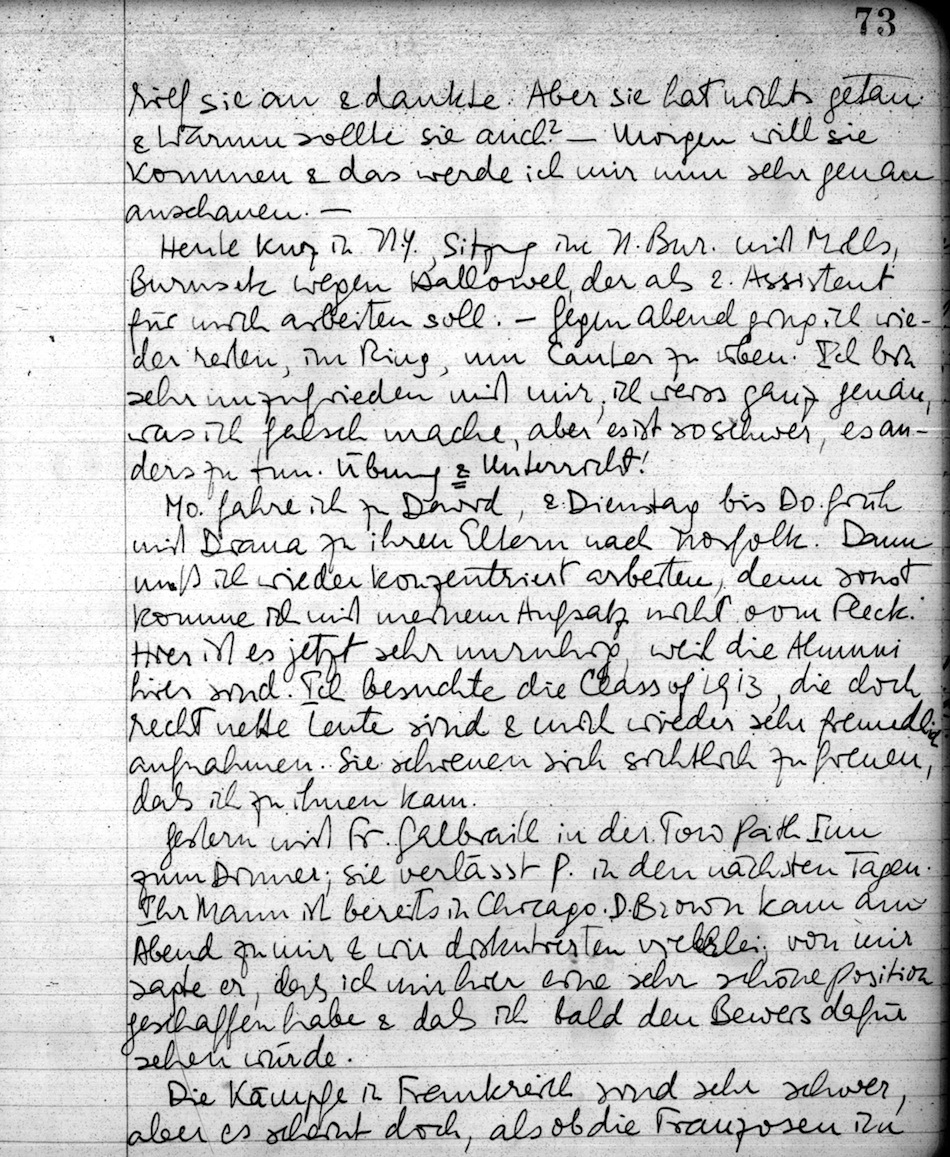 73
rief sie an & dankte. Aber sie hat nichts getan
& Warum sollte sie auch? — Morgen will sie
kommen & das werde ich mir nun sehr genau
anschauen. —
Heute kurz in N.Y., Sitzung im N. Bur. mit Mills,
wegen der als 2. Assistent
für mich arbeiten soll. — Gegen Abend ging ich wie-
der reiten, im Ring, um Canter zu üben. Ich bin
sehr unzufrieden mit mir, ich weiss ganz genau,
was ich falsch mache, aber es ist so schwer, es an-
ders zu tun. Übung & Unterricht!
Mo. fahre ich zu David, & Dienstag bis Do. früh
mit Diana zu ihren Eltern nach Norfolk. Dann
muß ich wieder konzentriert arbeiten, denn sonst
komme ich mit meinem Aufsatz nicht vom Fleck.
Hier ist es jetzt sehr unruhig, weil die Alumni
hier sind. Ich besuchte die Class of 1913, die doch
recht nette Leute sind & mich wieder sehr freundlich
aufnahmen. Sie schienen sich sichtlich zu freuen,
daß ich zu ihnen kam.
Gestern mit Fr. Galbraith in der Tow Path Inn
zum Dinner; sie verlässt P. in den nächsten Tagen.
Ihr Mann ist bereits in Chicago. D. Brown kam am
Abend zu mir & wir diskutierten vielerlei; von mir
sagte er, daß ich mir hier eine sehr schöne Position
geschaffen habe & daß ich bald den Beweis dafür
sehen würde.
Die Kämpfe in Frankreich sind sehr schwer,
aber es scheint doch, als ob die Franzosen ihn